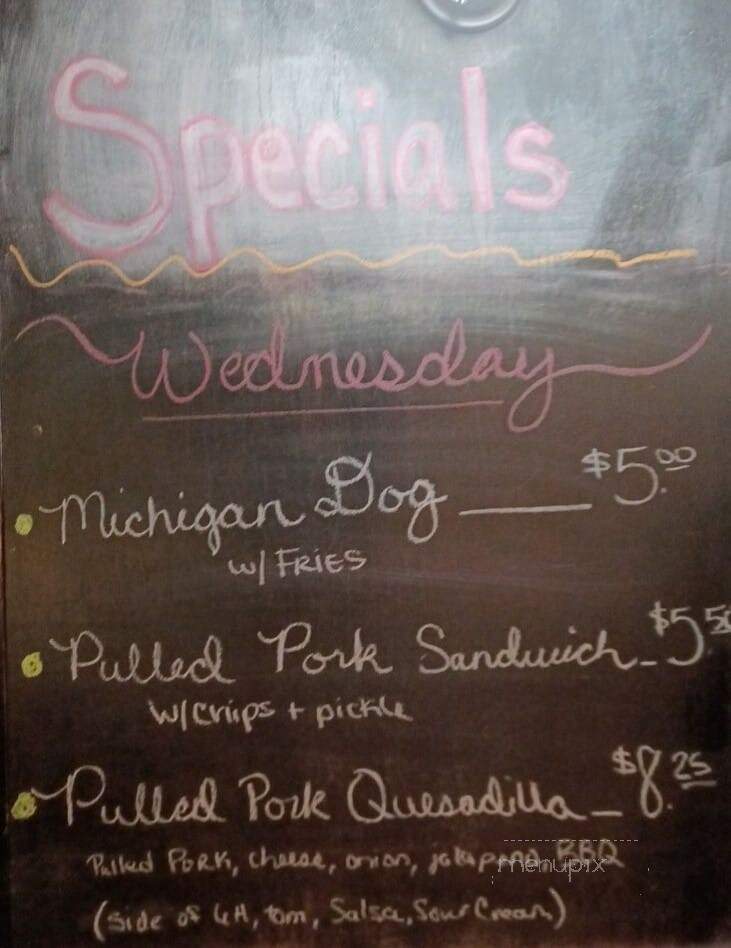 Specials
Wednesday
Michigan Dog $5.00
w/ FRIES
Pulled Pork Sandwich - $5.50
w/ chips + pickle
Pulled Pork Quesadilla - $8.25
Pulled PORK, cheese, onion, jalapeno BBQ
menupix
(Side of LH, tom, Salsa, Sour Cream)